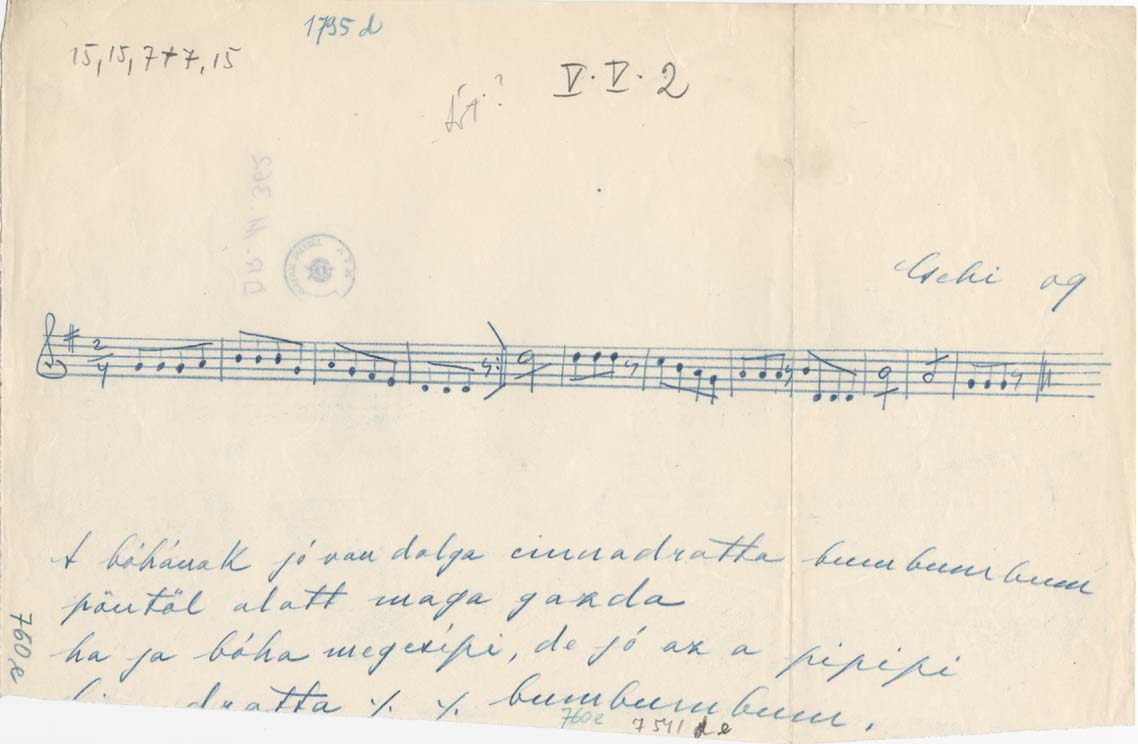 1795 d
15, 15, 7+7, 15
V. V. 2
DR. M 362
og
2/4
A bóhának jó van dolga cinnadratta bumbumbum
pöntöl alatt maga gazda
ha ja bóha megcsípi, de jó az a pipipi
dratta ٪ ٪ bumbumbum.
760e 7541 de
760,e